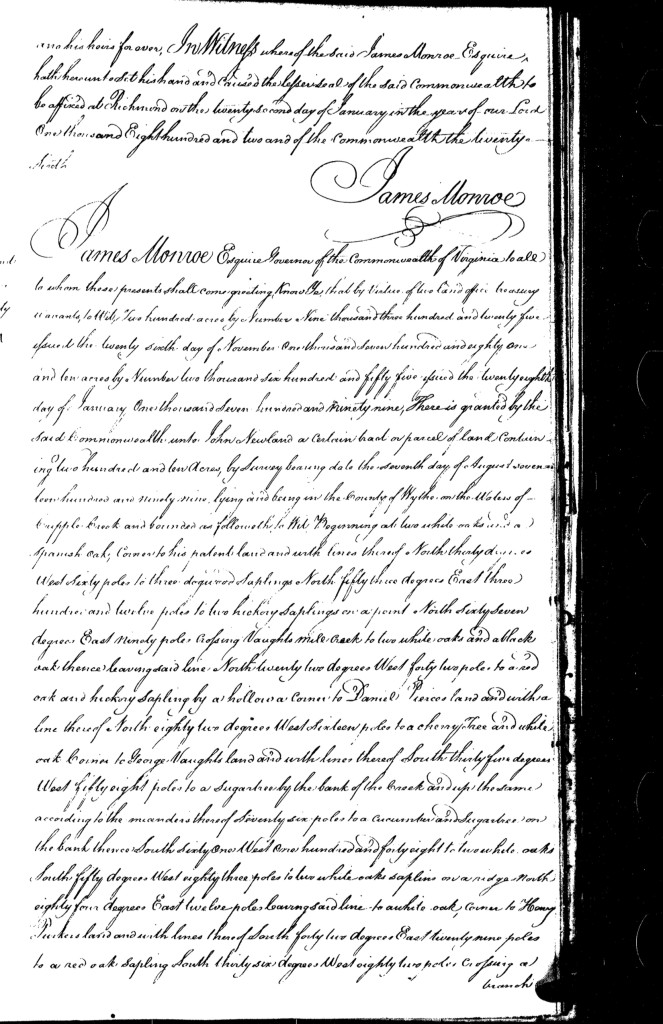 and his heirs for over, In Witness whereof the said James Monroe Esquire,
hath hereunto Set his hand and caused the lesser seal of the said Commonwealth to
be affixed at Richmond on the twenty second day of January in the year of our Lord
One thousand Eight hundred and two and of the Commonwealth the twenty
Sixth
James Monroe
James Monroe Esquire Governor of the Commonwealth of Virginia to all
to whom these presents shall come greeting Know Ye, that by Virtue of two land office treasury
warrants, to Wit, Two hundred acres by Number Nine thousand three hundred and twenty five
issued the twenty sixth day of November One thousand seven hundred and eighty one
and ten acres by Number two thousand six hundred and fifty five issued the twenty eighth
day of January One thousand Seven hundred and Ninety nine, There is granted by the
said Commonwealth unto John Newland a Certain tract or parcel of land Contain
ing two hundred and ten Acres, by Survey bearing date the seventh day of August seven
teen hundred and ninety nine, lying and being in the County of Wythe on the Waters of
Cripple Creek and bounded as followeth, to Wit Beginning at two white oaks and a
Spanish oak, Corner to his patent land and with lines thereof North thirty degrees
West Sixty poles to three dogwood Saplings North fifty three degrees East three
hundred and twelve poles to two hickory Saplings on a point North Sixty Seven
degrees East ninety poles Crossing Vaughts mill Creek to two white oaks and a black
oak thence leaving said line North twenty two degrees West forty two poles to a red
oak and hickory Sapling by a hollow a Corner to Daniel Pierces land and with a
line thereof North eighty two degrees West Sixteen poles to a cherry Tree and white
oak Corner to George Vaughts land and with lines thereof South thirty five degrees
West fifty eight poles to a Sugartree by the bank of the Creek and up the same
according to the meanders thereof Seventy six poles to a Cucumber and Sugartree on
the bank thence South Sixty One West One hundred and forty eight to two white oaks
South fifty degrees West eighty three poles to two white oaks saplins on a ridge North
eighty four degrees East twelve poles leaving said line to a white oak, Corner to Henry
Tuckers land and with lines thereof South forty two degrees East twenty nine poles
to a red oak Sapling South thirty six degrees West eighty two poles Crossing a
branch